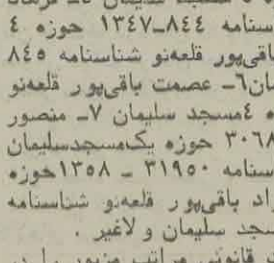 سنامه ٨٤٤ـ١٣٤٧ حوزه ٤
باقی‌پور قلعه‌نو شناسنامه ٨٤٥
مان٦ـ عصمت باقی‌پور قلعه‌نو
ه ٤مسجد سلیمان ٧ـ منصور
٣٠٦٨ حوزه یک‌مسجدسلیمان
سنامه ٣١٩٥٠ ـ ١٣٥٨حوزه
راد باقی‌پور قلعه‌نو شناسنامه
سجد سلیمان و لاغیر .